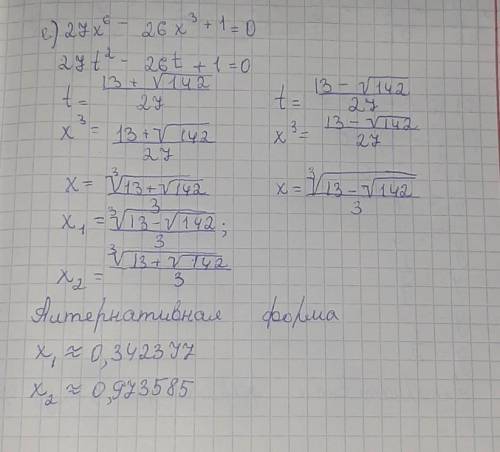 е) 27x⁶ - 26x³ + 1 = 0
27t² - 26t + 1 = 0
t = (13 + √142)/27    t = (13 - √142)/27
x³ = (13 + √142)/27    x³ = (13 - √142)/27
x = ∛(13 + √142)/3    x = ∛(13 - √142)/3
x₁ = ∛(13 - √142)/3;
x₂ = ∛(13 + √142)/3
Алтернативная форма
x₁ ≈ 0,342377
x₂ ≈ 0,973585